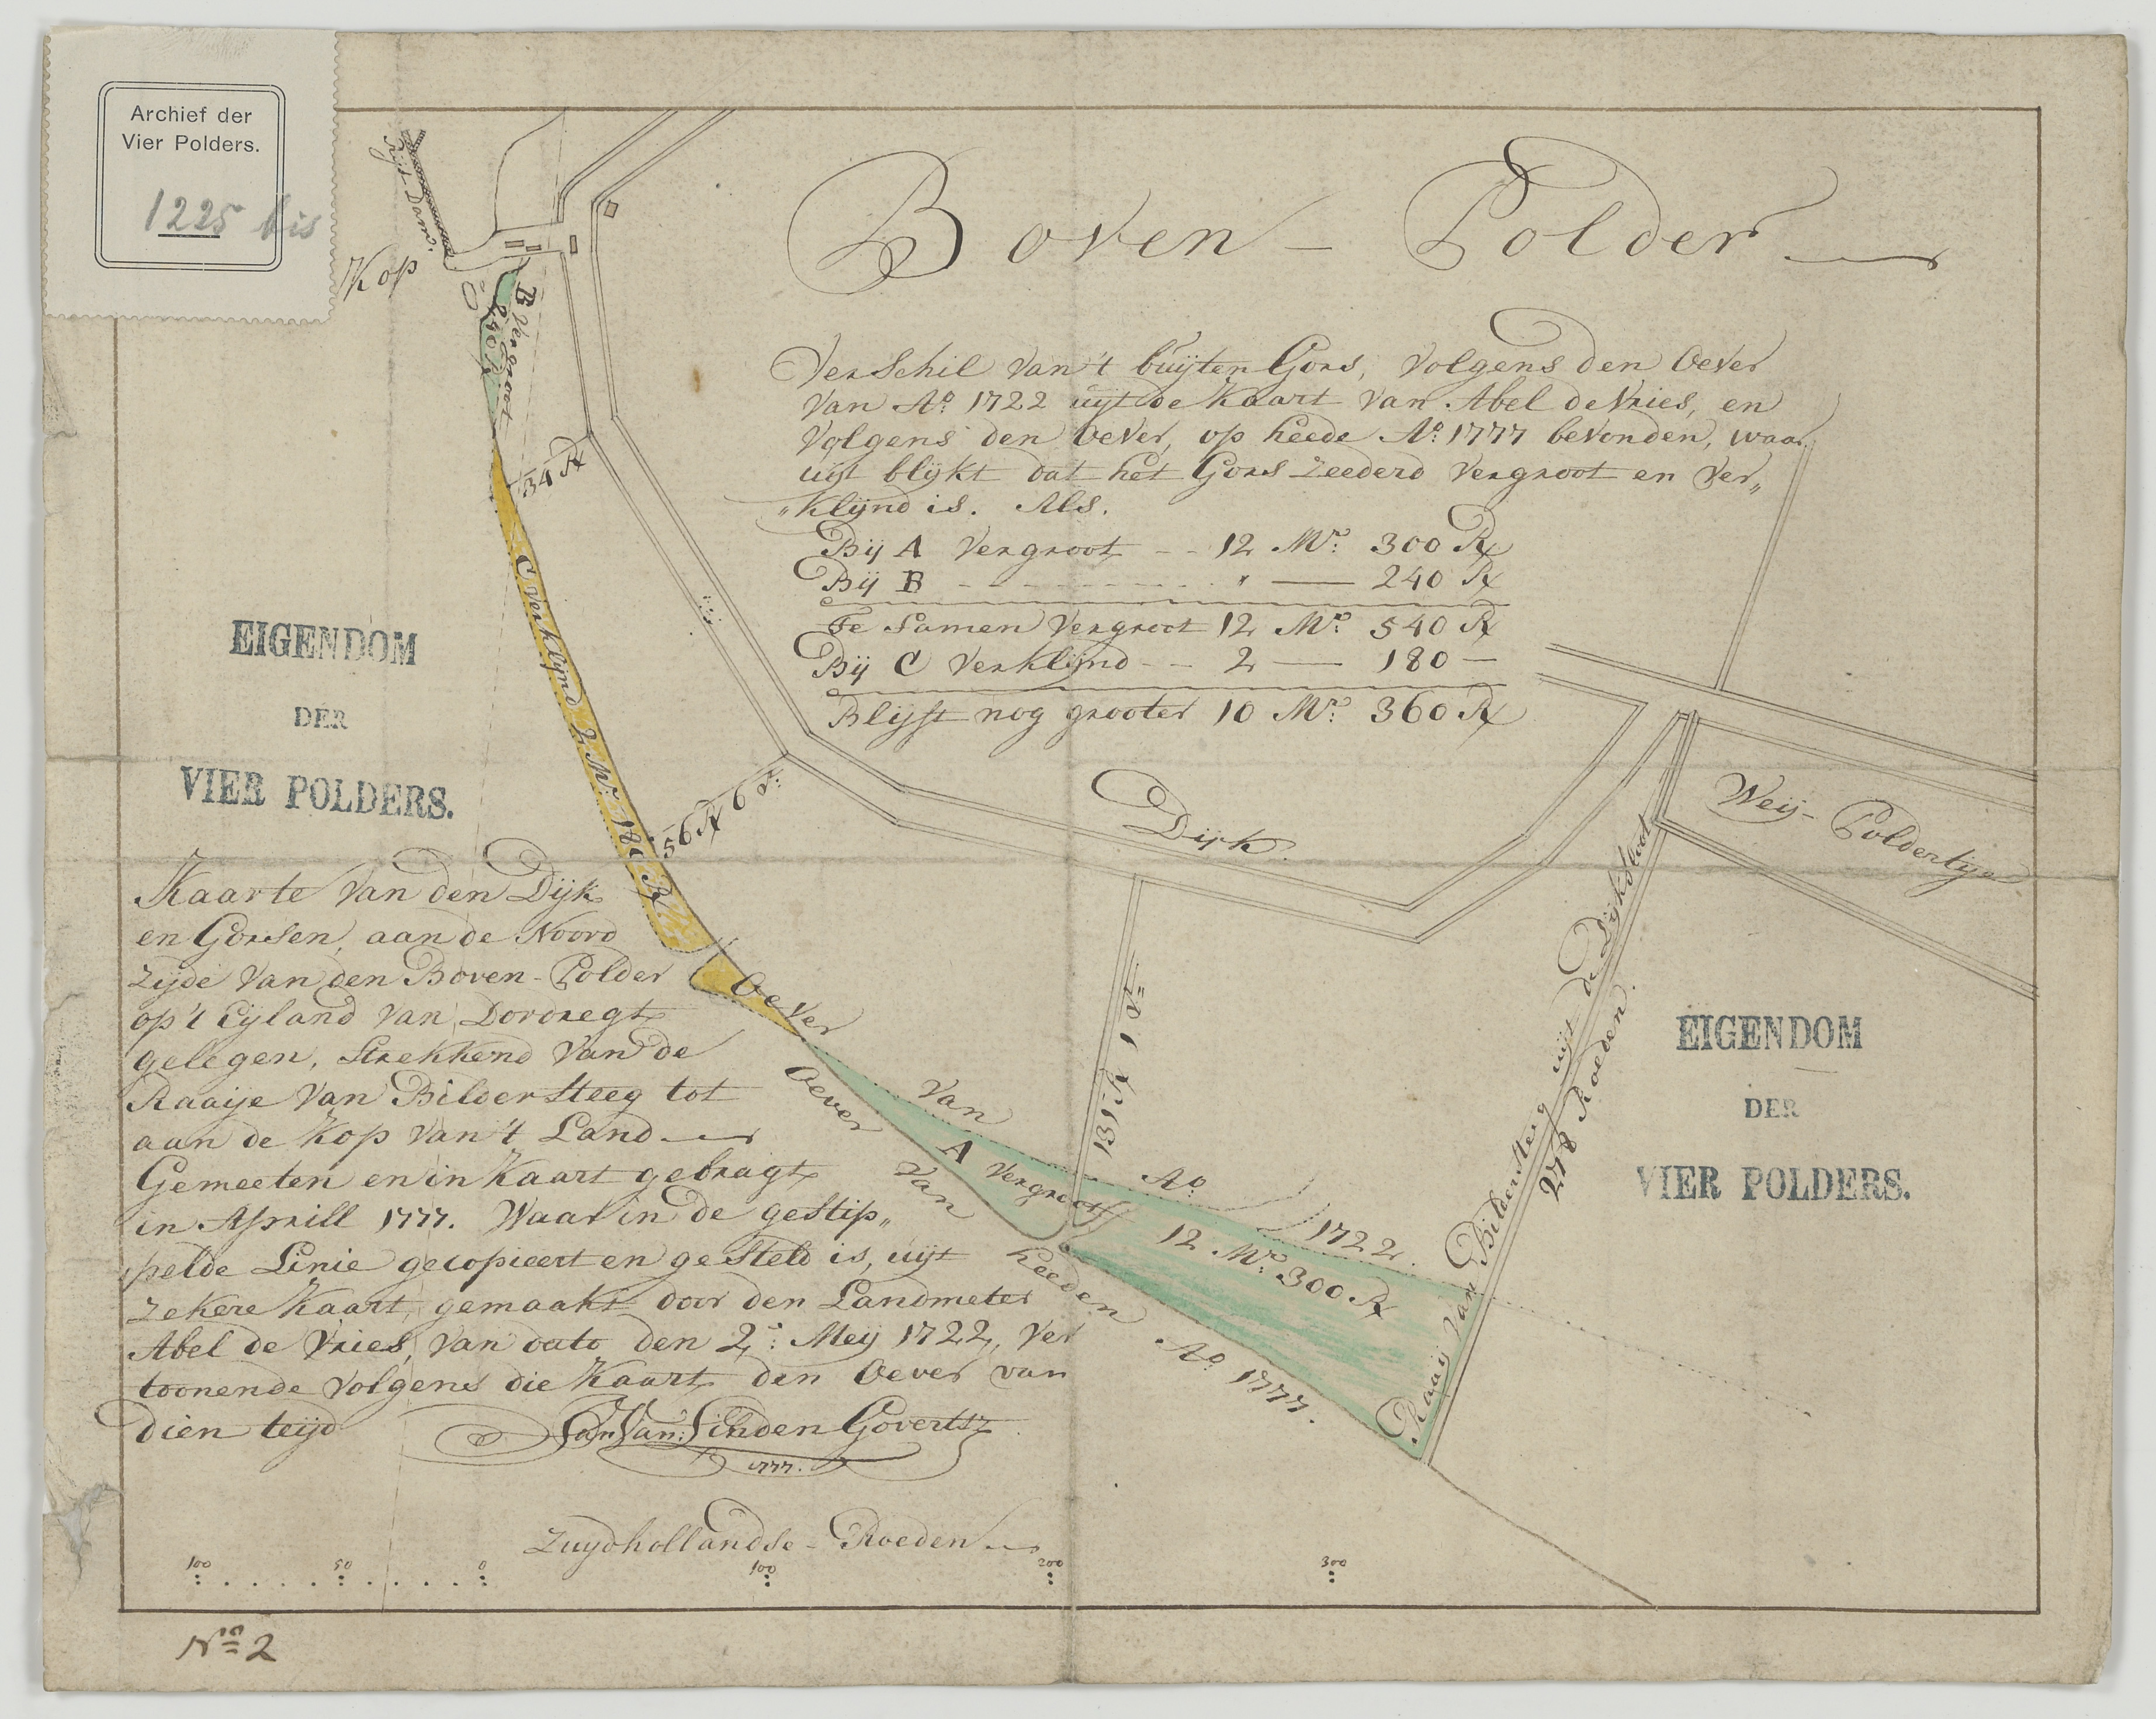 Archief der
Vier Polders.
1225 bis
Rijst-Dam
Kop
Boven - Polder
B Vergroot
240 R
34 R
VerSchil Van 't buÿten Gors, Volgens den Oever
Van Aº 1722 uÿt de Kaart Van Abel de Vries, en
Volgens den Oever, op heede Aº: 1777 bevonden, waar
uÿt blÿkt dat het Gors Zeederd Vergroot en Ver„
„Klÿnd is. Als.
Bÿ A Vergroot - - 12 Mº: 300 R
Bÿ B - - - - - - - " — 240 R
Te Samen Vergroot 12 Mº: 540 R
Bÿ C VerKlÿnd - - 2 — 180 —
Blÿft nog grooter 10 Mº: 360 R
EIGENDOM
DER
VIER POLDERS.
C VerKlÿnd 2 Mº: 180 R
56 R 6 Vt:
Dijk
Weij-Poldertye
Kaarte Van den Dÿk
en GorSen, aan de Noord
Zÿde Van den Boven-Polder
op 't Eÿland Van Dordregt
gelegen, Strekkend Van de
Raaije Van BilderSteeg tot
aan de Kop Van 't Land
Gemeeten en in Kaart gebragt
in Aprill 1777. Waar in de geStip„
pelde Linie gecopieert en geSteld is, uÿt
Zekere Kaart, gemaakt door den Landmeter
Abel de Vries, Van dato den 2: Meÿ 1722, Ver
toonende Volgens die Kaart den Oever van
dien teijd
Jan Van Linden Govertsz
1777.
Oever Van Aº 1722.
Oever Van heeden Aº 1777.
A Vergroot
12 Mº: 300 R
131 R 1 Vt
Raaij Van BilderSteeg uijt de DijkSloot
278 Roeden.
EIGENDOM
DER
VIER POLDERS.
Zuijdhollandse - Roeden
100 50 0 100 200 300
Nº 2